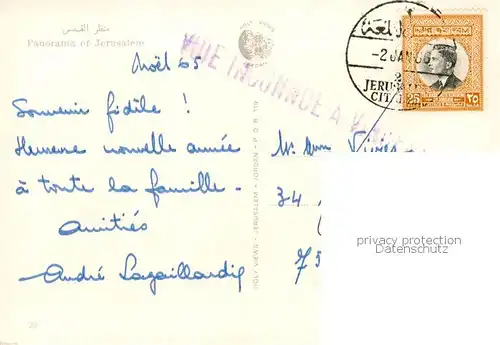 منظر القدس
Panorama of Jerusalem
Noël 65
Souvenir fidèle !
Heureuse nouvelle année
à toute la famille.
Amitiés
André Lagaillardie
34
75
RUE INCONNUE A
-2 JAN
JERUS
CIT
25
٢٥
HOLY VIEWS
HOLY VIEWS - JERUSALEM - JORDAN - P.O.B. 119
privacy protection
29